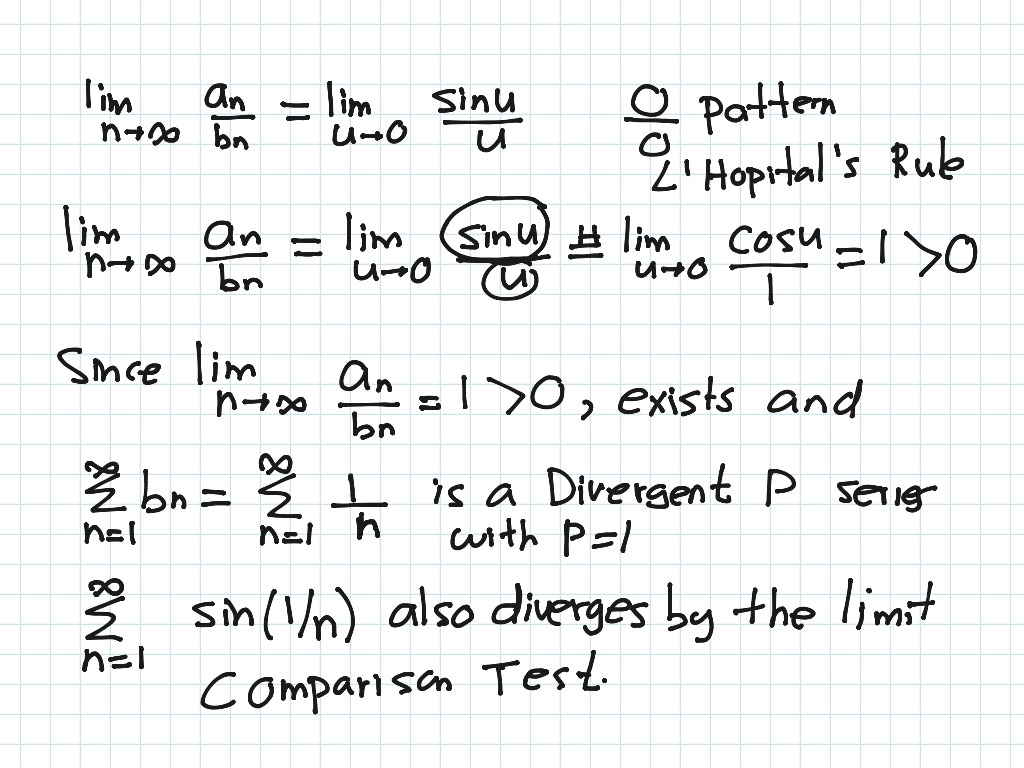 lim n→∞ an/bn = lim u→0 sinu/u 0/0 pattern
L'Hopital's Rule
lim n→∞ an/bn = lim u→0 sinu/u H= lim u→0 cosu/1 = 1 >0
Since lim n→∞ an/bn = 1 >0, exists and
∞∑n=1 bn = ∞∑n=1 1/n is a Divergent P series
with P=1
∞∑n=1 sin(1/n) also diverges by the limit
Comparison Test.